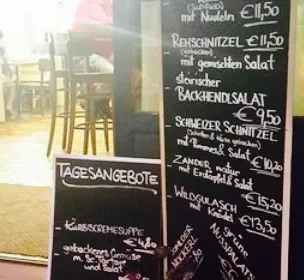 (Surfood)
mit Nudeln €11,50
REHSCHNITZEL €11,50
(gebacken)
mit gemischten Salat
steirischer
BACKHENDLSALAT
€9,50
SCHWEIZER SCHNITZEL
mit Pommes & Salat €10,20
ZANDER natur
mit Erdäpfel & Salat
€15,20
WILDGULASCH
mit Knödel €13,50
grüne
NUSSPALATS
TAGESANGEBOTE
KÜRBISCREMESUPPE
€4,80
gebackenes Gemüse
m. Sc. Tartare
und Salat